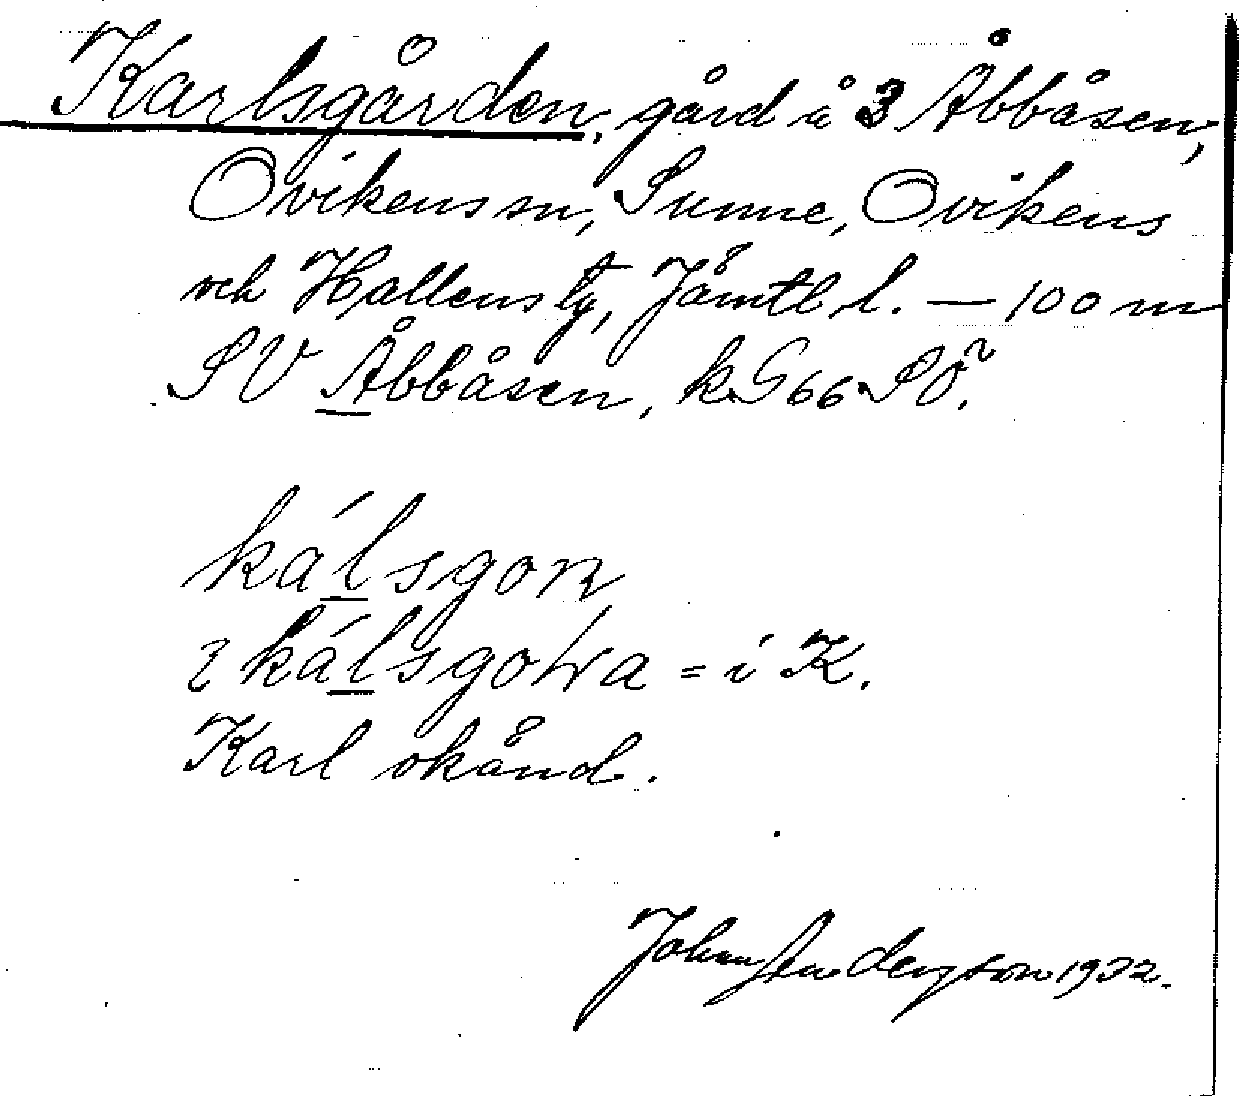 Karlsgården, gård å 3 Åbbåsen,
Ovikens sn, Sunne, Ovikens
och Hallens tg, Jämtl. l. — 100 m
SV Åbbåsen, kG66 SÖ.
kálsgoɴ
kálsgoɴa = i K.
Karl okänd.
Johan Anderzson 1932.